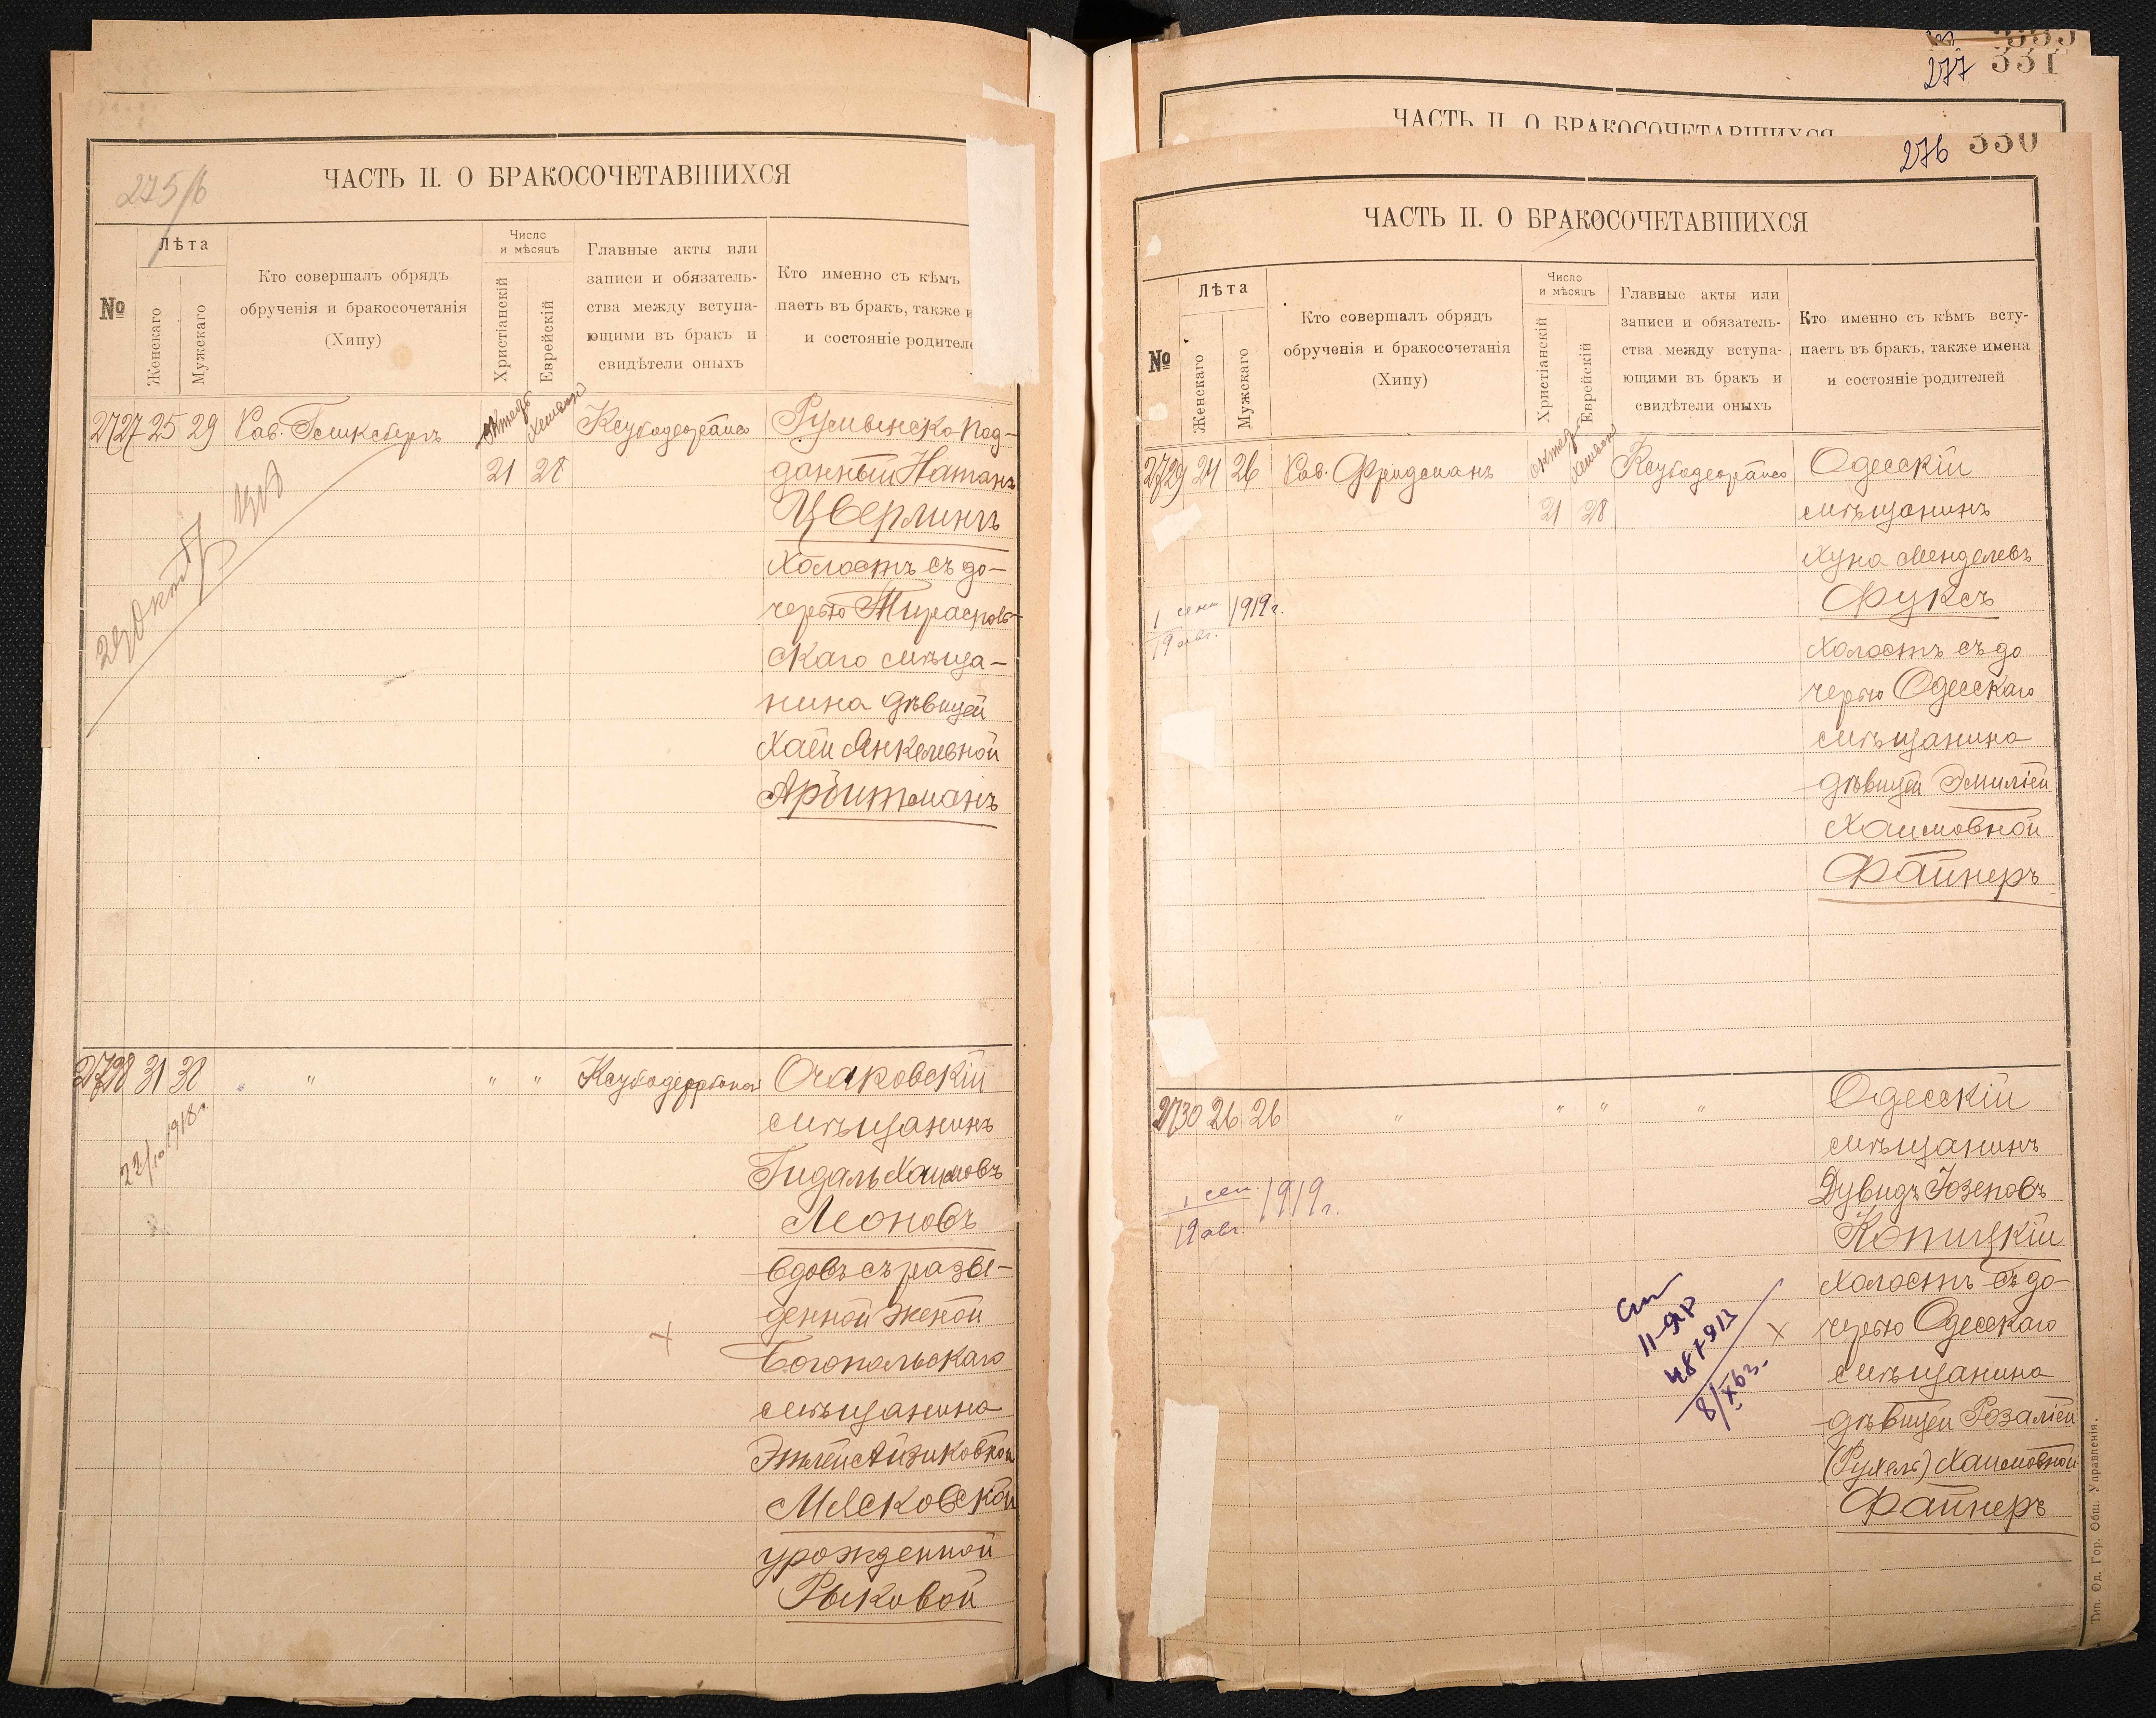 275/б
ЧАСТЬ II. О БРАКОСОЧЕТАВШИХСЯ
№
Лѣта
Женскаго
Мужскаго
Кто совершалъ обрядъ
обрученія и бракосочетанія
(Хипу)
Число
и мѣсяцъ
Христіанскій
Еврейскій
Главные акты или
записи и обязатель-
ства между вступа-
ющими въ бракъ и
свидѣтели оныхъ
Кто именно съ кѣмъ
паетъ въ бракъ, также и
и состояніе родителе
2727 25 29 Рав. октяб. хешван Румынско под-
21 28 данный Натанъ
Цверлингъ
холостъ съ до-
черью Тирасполь-
скаго мѣща-
нина дѣвицей
Хаей Янкелевной
Арбитманъ
2728 31 38 " " " " Очаковскій
22/10 1918г.
мѣщанинъ
Гидаль Хаимовъ
Леоновъ
вдовъ съ разве-
денной женой
Богопольскаго
мѣщанина
Этлей Айзиковной
Мясковской
урожденной
Рыковой
277 331
ЧАСТЬ II. О БРАКОСОЧЕТАВШИХСЯ
276 330
ЧАСТЬ II. О БРАКОСОЧЕТАВШИХСЯ
№
Лѣта
Женскаго
Мужскаго
Кто совершалъ обрядъ
обрученія и бракосочетанія
(Хипу)
Число
и мѣсяцъ
Христіанскій
Еврейскій
Главные акты или
записи и обязатель-
ства между вступа-
ющими въ бракъ и
свидѣтели оныхъ
Кто именно съ кѣмъ всту-
паетъ въ бракъ, также имена
и состояніе родителей
2729 24 26 Рав. Фридманъ октяб. хешван Одесскій
21 28 мѣщанинъ
Хуна Менделевъ
Фуксъ
1 сент. 1919г.
19 авг.
холостъ съ до
черью Одесскаго
мѣщанина
дѣвицей Эмиліей
Хаимовной
Файнеръ
2730 26 26 " " " " Одесскій
мѣщанинъ
Дувидъ Іозеповъ
1 сен. 1919г.
19 авг.
Копицкій
холостъ съ до-
черью Одесскаго
мѣщанина
дѣвицей Розаліей
(Рухель) Хаимовной
Файнеръ
Тип. Од. Гор. Общ. Управленія.